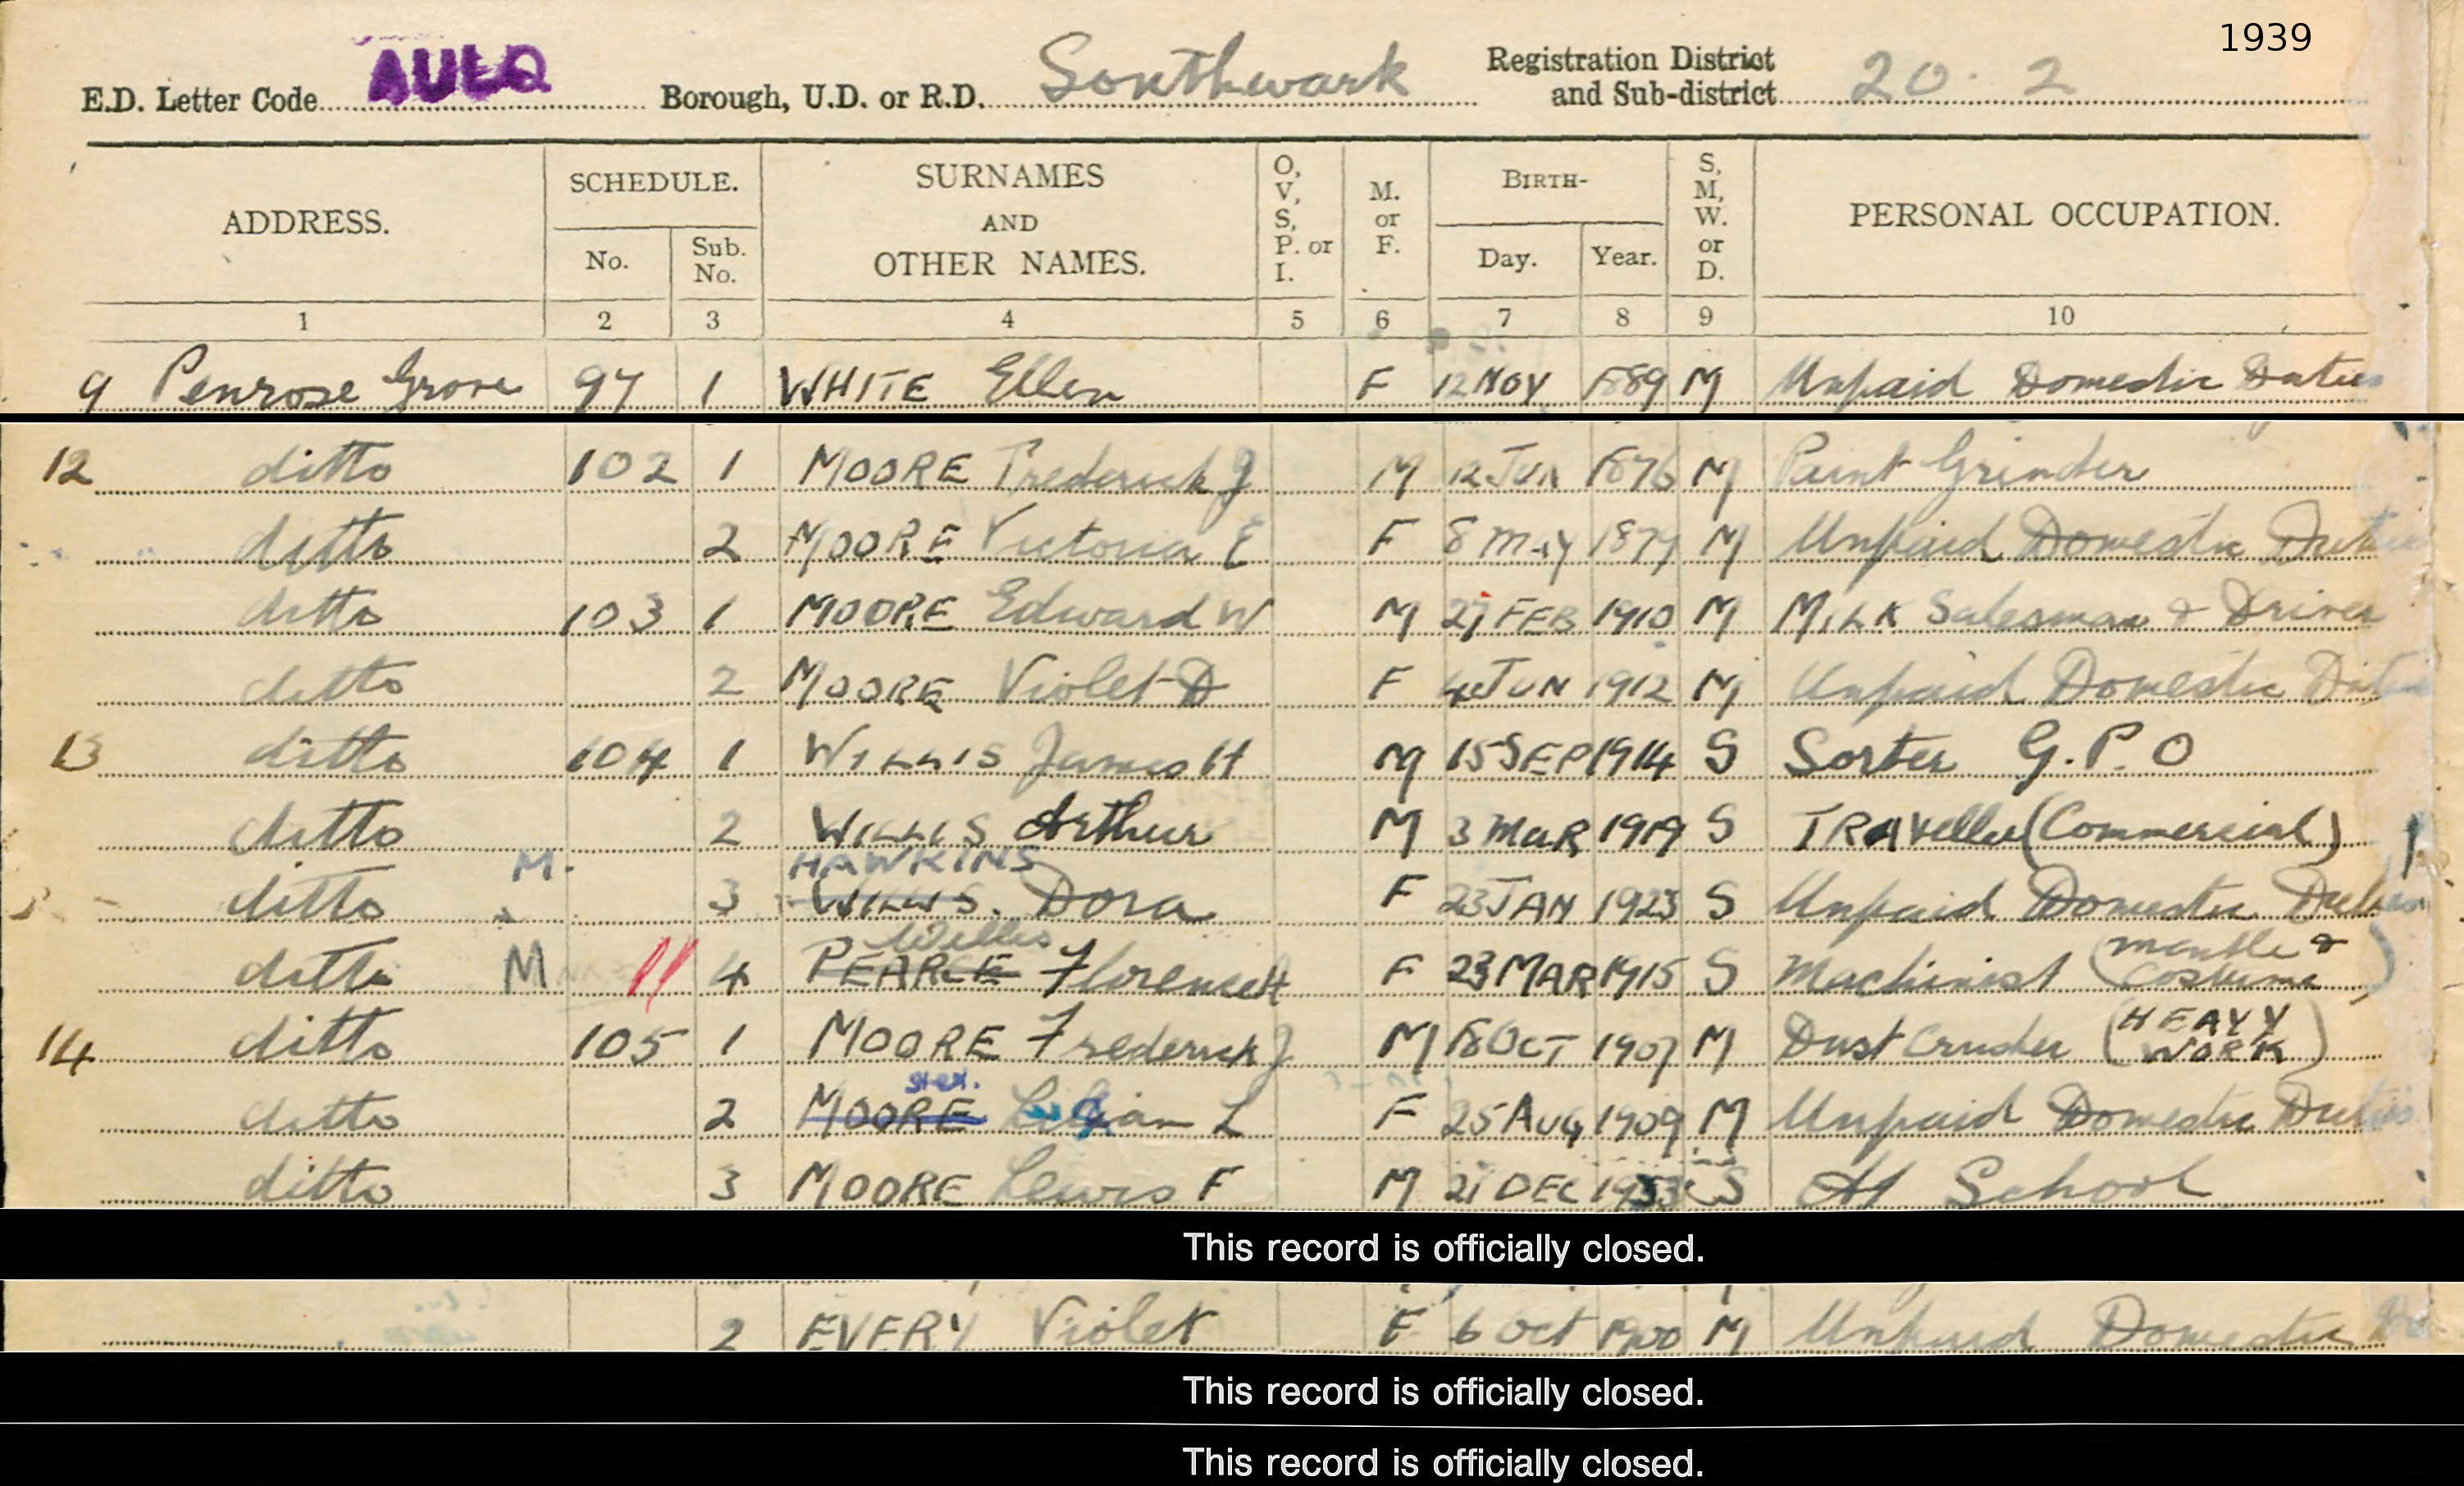 1939
E.D. Letter Code AULQ Borough, U.D. or R.D. Southwark Registration District and Sub-district 20. 2
ADDRESS. SCHEDULE. No. Sub. No. SURNAMES AND OTHER NAMES. O, V, S, P. or I. M. or F. BIRTH- Day. Year. S, M, W. or D. PERSONAL OCCUPATION.
1 2 3 4 5 6 7 8 9 10
9 Penrose Grove 97 1 WHITE Ellen F 12 NOV 1889 M Unpaid Domestic Duties
12 ditto 102 1 MOORE Frederick J M 12 JUN 1876 M Paint Grinder
ditto 2 MOORE Victoria E F 8 May 1879 M Unpaid Domestic Duties
ditto 103 1 MOORE Edward W M 27 FEB 1910 M MILK Salesman & Driver
ditto 2 MOORE Violet D F 4 JUN 1912 M Unpaid Domestic Duties
13 ditto 104 1 WILLIS James H M 15 SEP 1914 S Sorter G.P.O
ditto 2 WILLIS Arthur M 3 MaR 1919 S TRAVeller (Commercial)
M. HAWKINS
ditto 3 WILLIS. Dora F 23 JAN 1923 S Unpaid Domestic Duties
Willis
ditto M 4 PEARCE Florence H F 23 MAR 1915 S Machinist (mantle & costume)
14 ditto 105 1 MOORE Frederick J M 18 OCT 1907 M Dust Crusher (HEAVY WORK)
ditto 2 MOORE Lilian L F 25 AUG 1909 M Unpaid Domestic Duties
ditto 3 MOORE Lewis F M 21 DEC 1933 S At School
This record is officially closed.
2 EVERY Violet F 6 Oct 1900 M Unpaid Domestic
This record is officially closed.
This record is officially closed.